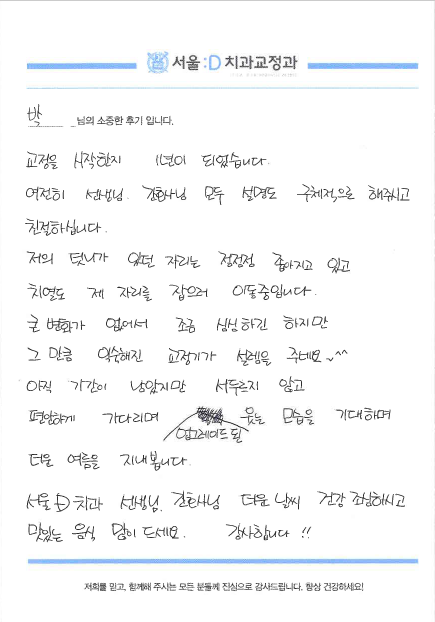 서울:D 치과교정과
박 님의 소중한 후기 입니다.
교정을 시작한지 1년이 되었습니다.
여전히 선생님, 간호사님 모두 설명도 구체적으로 해주시고
친절하십니다.
저의 덧니가 있던 자리는 점점점 좁아지고 있고
치열도 제 자리를 잡으러 이동중입니다.
큰 변화가 없어서 조금 심심하긴 하지만
그 만큼 익숙해진 교정기가 설렘을 주네요 ^^
아직 기간이 남았지만 서두르지 않고
편안하게 기다리며 업그레이드 된 웃는 모습을 기대하며
더운 여름을 지내봅니다.
서울:D 치과 선생님, 간호사님 더운 날씨 건강 조심하시고
맛있는 음식 많이 드세요. 감사합니다 !!
저희를 믿고, 함께해 주시는 모든 분들께 진심으로 감사드립니다. 항상 건강하세요!